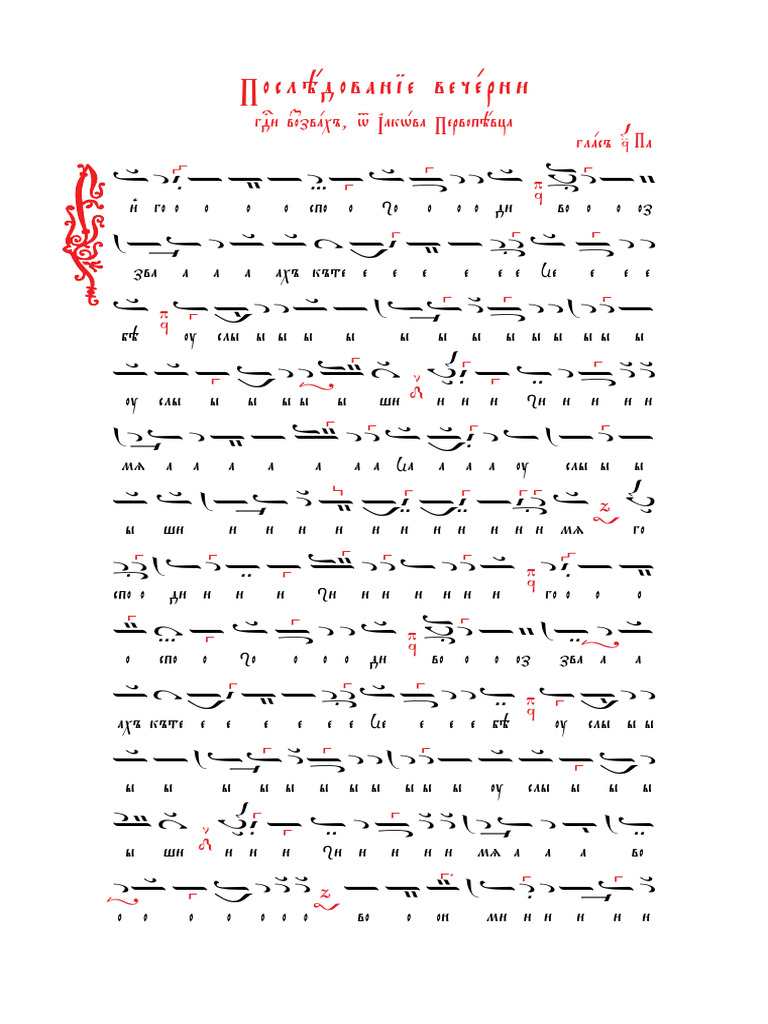 Послѣ́дованїе вече́рни
гдⷭ҇и воззва́хъ, ѿ Іакѡ́ва Первопѣ́вца
гла́съ Па
и҆ го о о о о спо о го о о о ди во о о оз
зва а а а ахъ къте е е е е е е не е е е
бѣ оу слы ы ы ы ы ы ы ы ы ы ы ы ы
оу слы ы ы ы ы ы ши и и и хи и и и и
мѧ а а а а а а а на а а а оу слы ы ы
ы ши и и и и и и и и и и и мѧ го
спо о ди и и и хи и и и и и и го о о о
о спо о го о о о ди во о о оз зва а а
ахъ къте е е е е е е не е е е бѣ оу слы ы ы
ы ы ы ы ы ы ы ы ы ы оу слы ы ы ы
ы ши и и и хи и и и и мѧ а а а во
о о о о о о о во о он ми и и и и